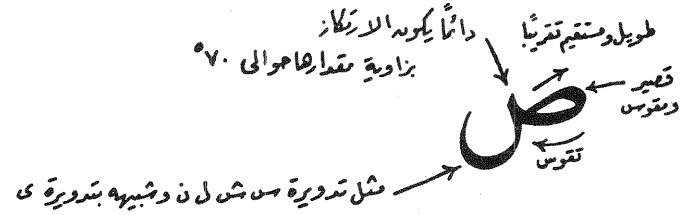 طويل ومستقيم تقريبًا
دائمًا يكون الارتكاز
بزاوية مقدارها حوالى ٧٠°
قصير
ومقوس
ص
تقوس
مثل تدويرة س ش ل ن وشبيهه بتدويرة ى